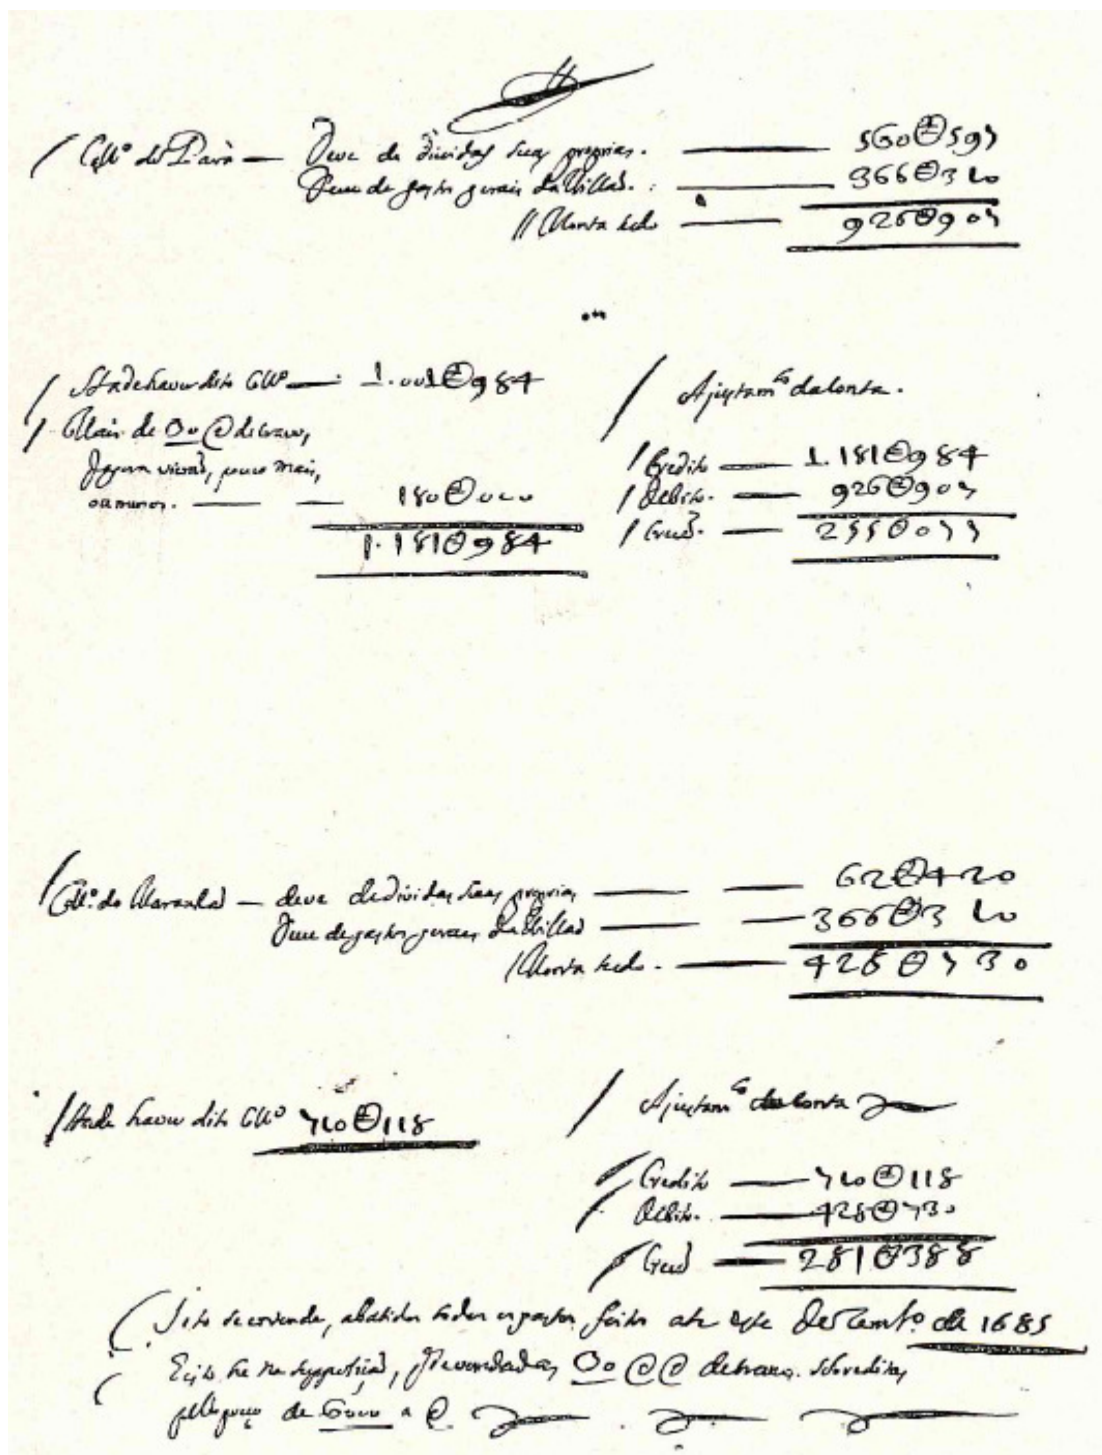 Coll.º do Parà — Deve de dividas suas proprias. — 560⊖597
Deve de gastos gerais da Missaõ. — 366⊖310
Monta tudo — 926⊖907
Ha de haver dito Coll.º — 1.001⊖984
Mais de 30 @ de cravo,
agora viraõ, pouco mais,
ou menos. — — 180⊖000
1.181⊖984
Ajustam.to da Conta.
Credito — 1.181⊖984
Debito. — 926⊖907
255⊖077
Coll.º do Maranhaõ — deve de dividas suas proprias — — 62⊖420
Deve de gastos gerais da Missaõ — — 366⊖310
Monta tudo. — 428⊖730
Ha de haver dito Coll.º 710⊖118
Ajustam.to da Conta
Credito — 710⊖118
Debito. — 428⊖730
281⊖388
Isto se entende, abatidos todos os gastos feitos ate este Dezembr.º de 1685
E isto he na supposiçaõ, 30 @@ de cravo. sobreditas,
pello preço de 6000 a @.